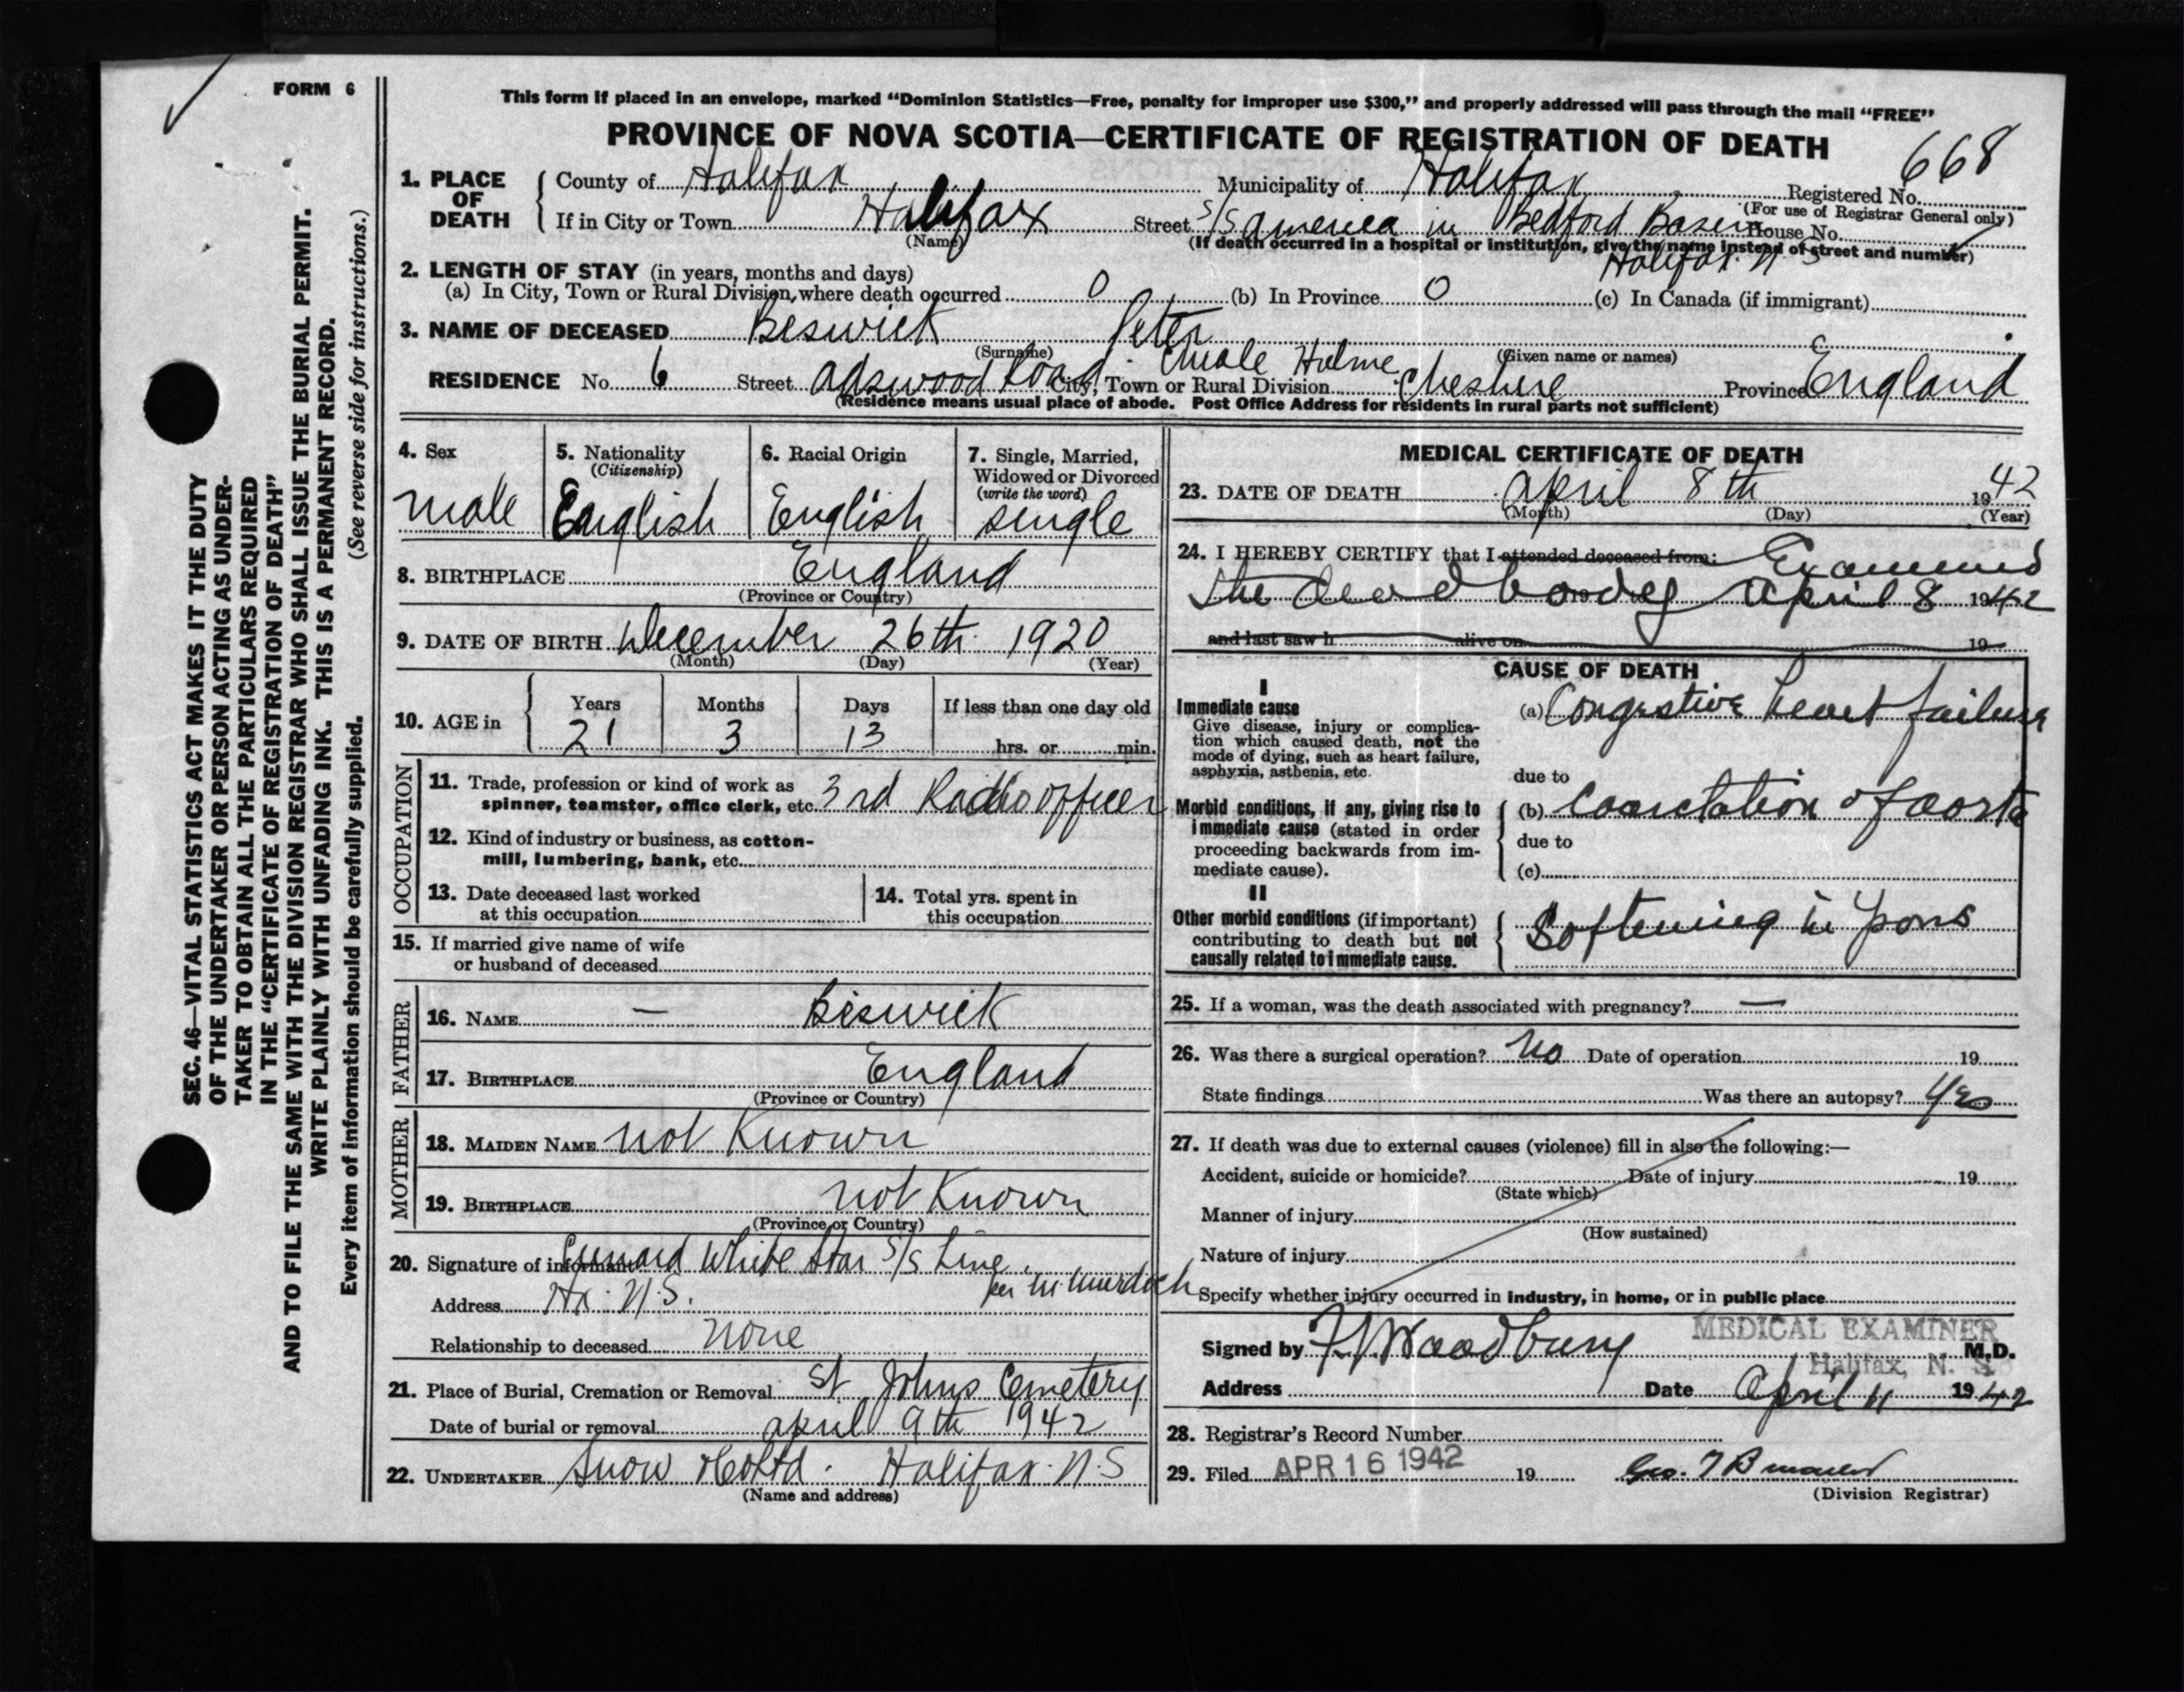 FORM 6
This form if placed in an envelope, marked “Dominion Statistics—Free, penalty for improper use $300,” and properly addressed will pass through the mail “FREE”
PROVINCE OF NOVA SCOTIA—CERTIFICATE OF REGISTRATION OF DEATH
668
1. PLACE OF DEATH
County of Halifax Municipality of Halifax Registered No.
(For use of Registrar General only)
If in City or Town Halifax Street S/S America in Bedford Basin House No.
(Name) (If death occurred in a hospital or institution, give the name instead of street and number)
Halifax N S
2. LENGTH OF STAY (in years, months and days)
(a) In City, Town or Rural Division, where death occurred 0 (b) In Province 0 (c) In Canada (if immigrant)
3. NAME OF DECEASED Beswick Peter
(Surname) (Given name or names)
RESIDENCE No. 6 Street Adswood Road City, Town or Rural Division Cheale Hulme Cheshire Province England
(Residence means usual place of abode. Post Office Address for residents in rural parts not sufficient)
4. Sex
male
5. Nationality
(Citizenship)
English
6. Racial Origin
English
7. Single, Married,
Widowed or Divorced
(write the word)
single
8. BIRTHPLACE England
(Province or Country)
9. DATE OF BIRTH December 26th 1920
(Month) (Day) (Year)
10. AGE in
Years Months Days If less than one day old
21 3 13 hrs. or min.
OCCUPATION
11. Trade, profession or kind of work as
spinner, teamster, office clerk, etc. 3rd Radio officer
12. Kind of industry or business, as cotton-
mill, lumbering, bank, etc.
13. Date deceased last worked
at this occupation
14. Total yrs. spent in
this occupation
15. If married give name of wife
or husband of deceased
FATHER
16. NAME — Beswick
17. BIRTHPLACE England
(Province or Country)
MOTHER
18. MAIDEN NAME not Known
19. BIRTHPLACE not Known
(Province or Country)
20. Signature of informant Cunard White Star S/S Line
per M Murdoch
Address Hx. N.S.
Relationship to deceased none
21. Place of Burial, Cremation or Removal St Johns Cemetery
Date of burial or removal april 9th 1942
22. UNDERTAKER Snow & Co Ltd. Halifax N.S
(Name and address)
MEDICAL CERTIFICATE OF DEATH
23. DATE OF DEATH April 8th 1942
(Month) (Day) (Year)
24. I HEREBY CERTIFY that I attended deceased from: Examined
the dead body 19 April 8 1942
and last saw h alive on 19
CAUSE OF DEATH
I
Immediate cause
Give disease, injury or complica-
tion which caused death, not the
mode of dying, such as heart failure,
asphyxia, asthenia, etc.
(a) Congestive heart failure
due to
Morbid conditions, if any, giving rise to
immediate cause (stated in order
proceeding backwards from im-
mediate cause).
(b) Coarctation of aorta
due to
(c)
II
Other morbid conditions (if important)
contributing to death but not
causally related to immediate cause.
Softening in pons
25. If a woman, was the death associated with pregnancy? —
26. Was there a surgical operation? No Date of operation 19
State findings Was there an autopsy? Yes
27. If death was due to external causes (violence) fill in also the following:—
Accident, suicide or homicide? Date of injury 19
(State which)
Manner of injury
(How sustained)
Nature of injury
Specify whether injury occurred in industry, in home, or in public place
MEDICAL EXAMINER
Signed by F V Woodbury M.D.
Halifax, N. S
Address Date April 11 1942
28. Registrar's Record Number
29. Filed APR 16 1942 19
(Division Registrar)
SEC. 46—VITAL STATISTICS ACT MAKES IT THE DUTY
OF THE UNDERTAKER OR PERSON ACTING AS UNDER-
TAKER TO OBTAIN ALL THE PARTICULARS REQUIRED
IN THE “CERTIFICATE OF REGISTRATION OF DEATH”
AND TO FILE THE SAME WITH THE DIVISION REGISTRAR WHO SHALL ISSUE THE BURIAL PERMIT.
WRITE PLAINLY WITH UNFADING INK. THIS IS A PERMANENT RECORD.
Every item of information should be carefully supplied. (See reverse side for instructions.)